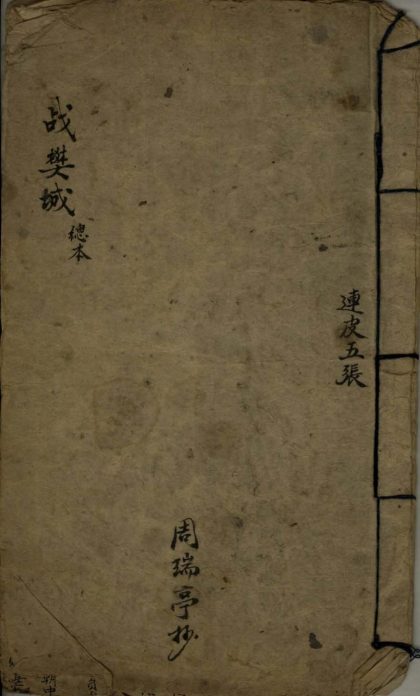 連皮五張
战樊城
總本
周瑞亭抄
朝中